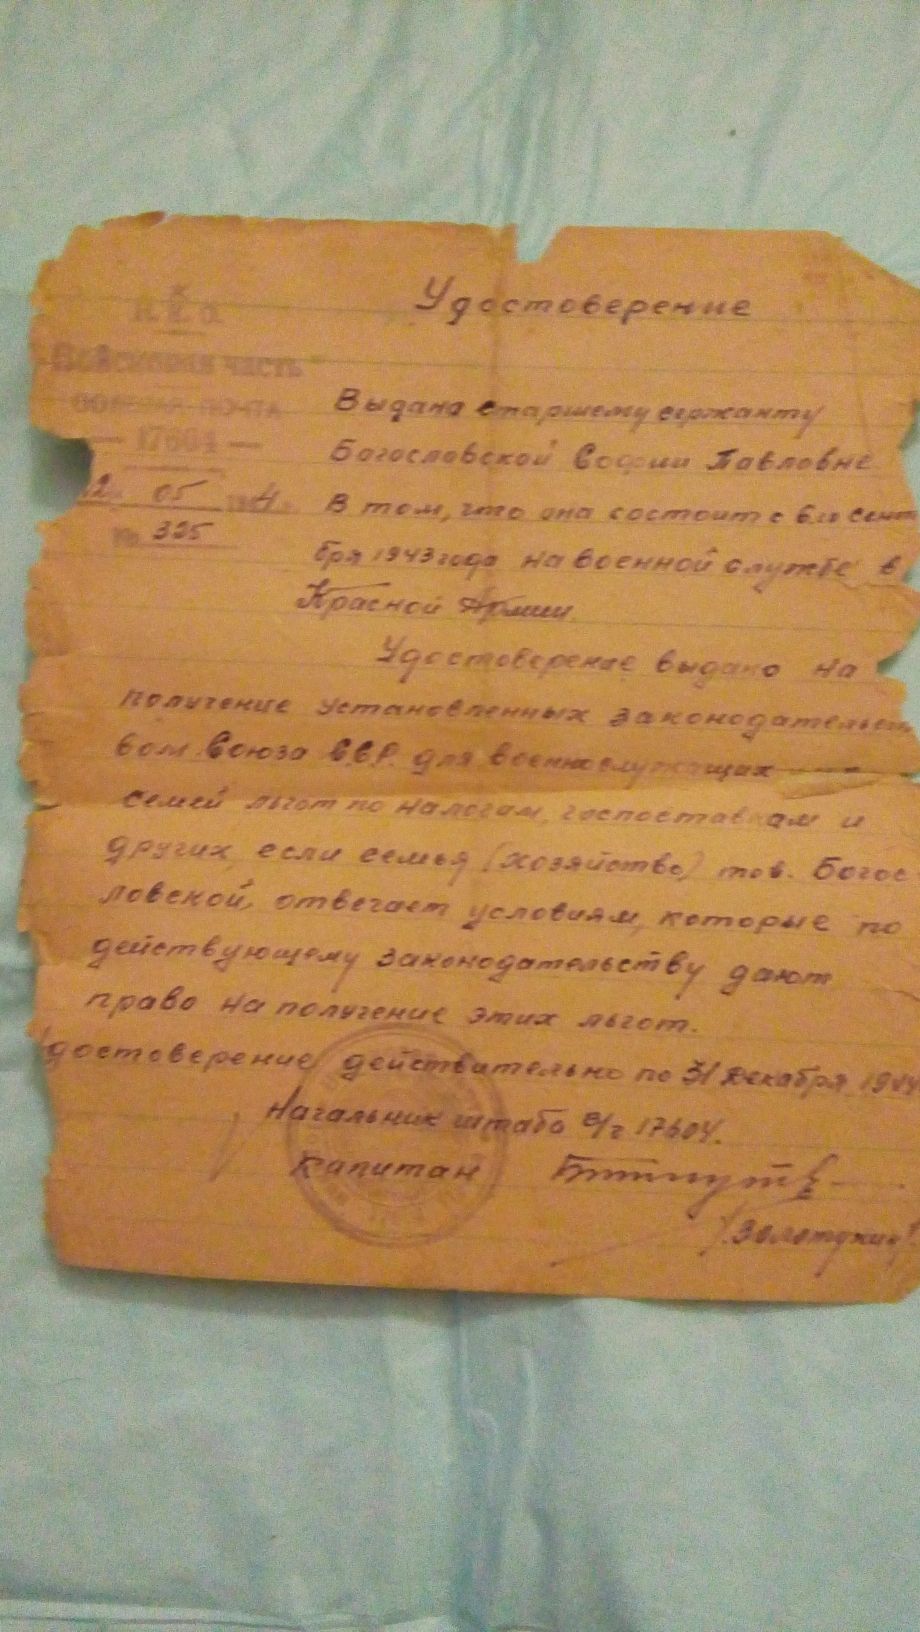 Удостоверение
Н.К.О.
Войсковая часть
ПОЛЕВАЯ ПОЧТА
— 17604 —
2 05 194
№ 325
Выдана старшему сержанту
Богословской Софии Павловне
В том, что она состоит с 6го сент
бря 1943 года на военной службе в
Красной Армии.
Удостоверение выдано на
получение установленных законодательст
вом Союза С.С.Р. для военнослужащих
семей льгот по налогам, госпоставкам и
других, если семья (хозяйство) тов. Богос-
ловской, отвечает условиям, которые по
действующему законодательству дают
право на получение этих льгот.
Удостоверение действительно по 31 декабря 1944
Начальник штаба в/ч 17604.
Капитан
/Золотухин/